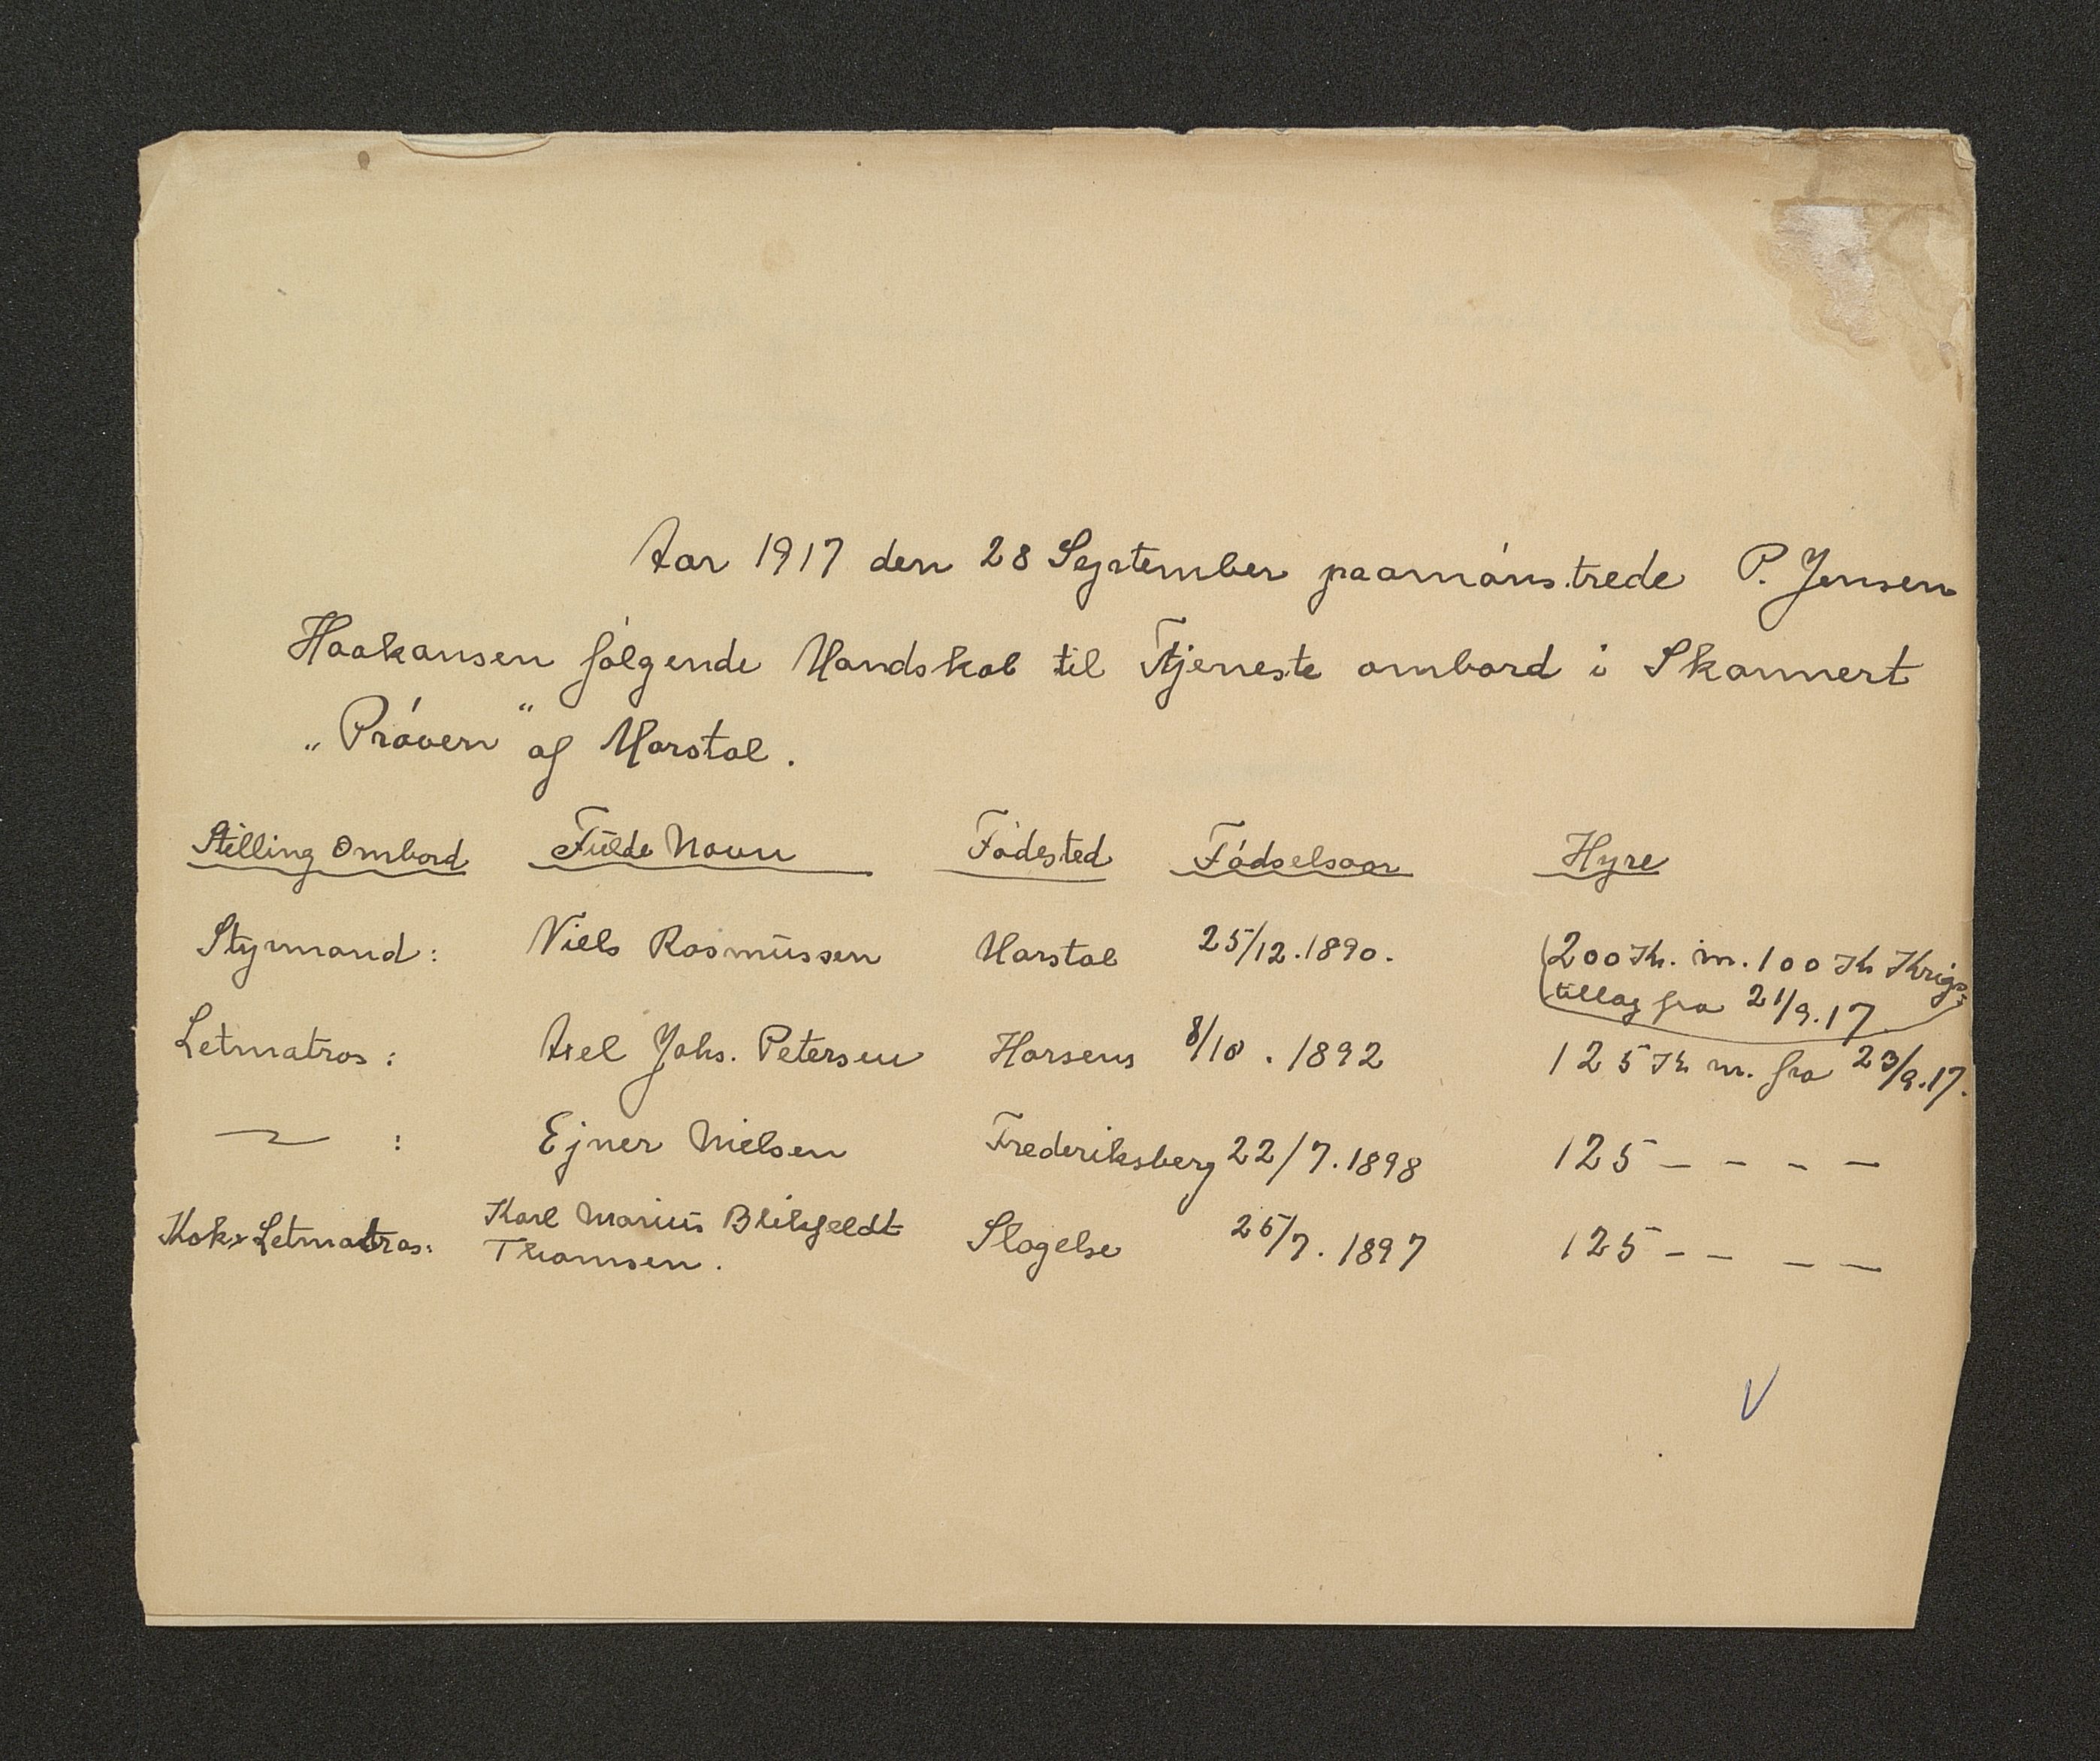 Aar 1917 den 28 September paamónstrede P. Jensen
Haakansen fólgende Mandskab til Tjeneste ombord i Skonnert
„Próven“ af Marstal.
Stilling Ombord Fulde Navn Fódested Fódselsaar Hyre
Styrmand: Niels Rasmussen Marstal 25/12.1890. 200 Kr. m. 100 Kr Krigs=
tillæg fra 21/9.17
Letmatros: Axel Johs. Petersen Horsens 8/10. 1892 125 Kr m. fra 23/9.17.
— : Ejner Nielsen Frederiksberg 22/7.1898 125 – – – –
Kok & Letmatros: Karl Marius Blikfeldt Slagelse 25/7. 1897 125 – – – –
Thomsen.